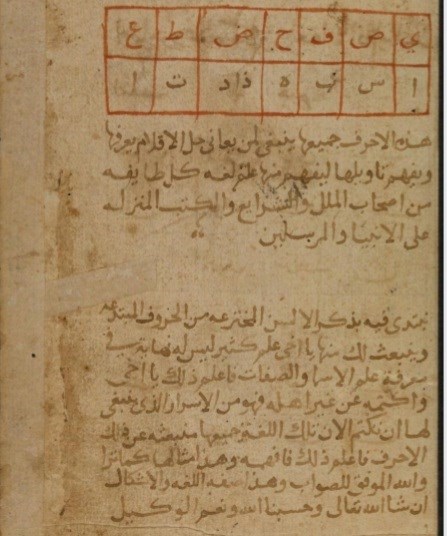 ي ص ف ح ض ط ع
ا س ب ه ذاد ت ا
هذه الاحرف جميعها ينبغي لمن يعاني حل الاقلام يعرفها
ويفهم تاويلها ليفهم منها علم لغه كل طايفه
من اصحاب الملل والشرايع والكتب المنزله
على الانبيا والمرسلين
نبتدي فيه بذكر الالسن المخترعه من الحروف المبتدعه
وينبعث لك منها يا اخي علم كثير ليس له نهايه في
معرفة علم الاسما والصفات فاعلم ذلك يا اخي
واكتمه عن غير اهله فهو من الاسرار الذي ينبغي
لها ان تكتم الان تلك اللغة جميعها منبعثه عن تلك
الاحرف فاعلم ذلك فافهمه وهذا مثالها كما ترا
والله الموفق للصواب وهذا صفة اللغه والاشكال
ان شا الله تعالى وحسبنا الله ونعم الوكيل